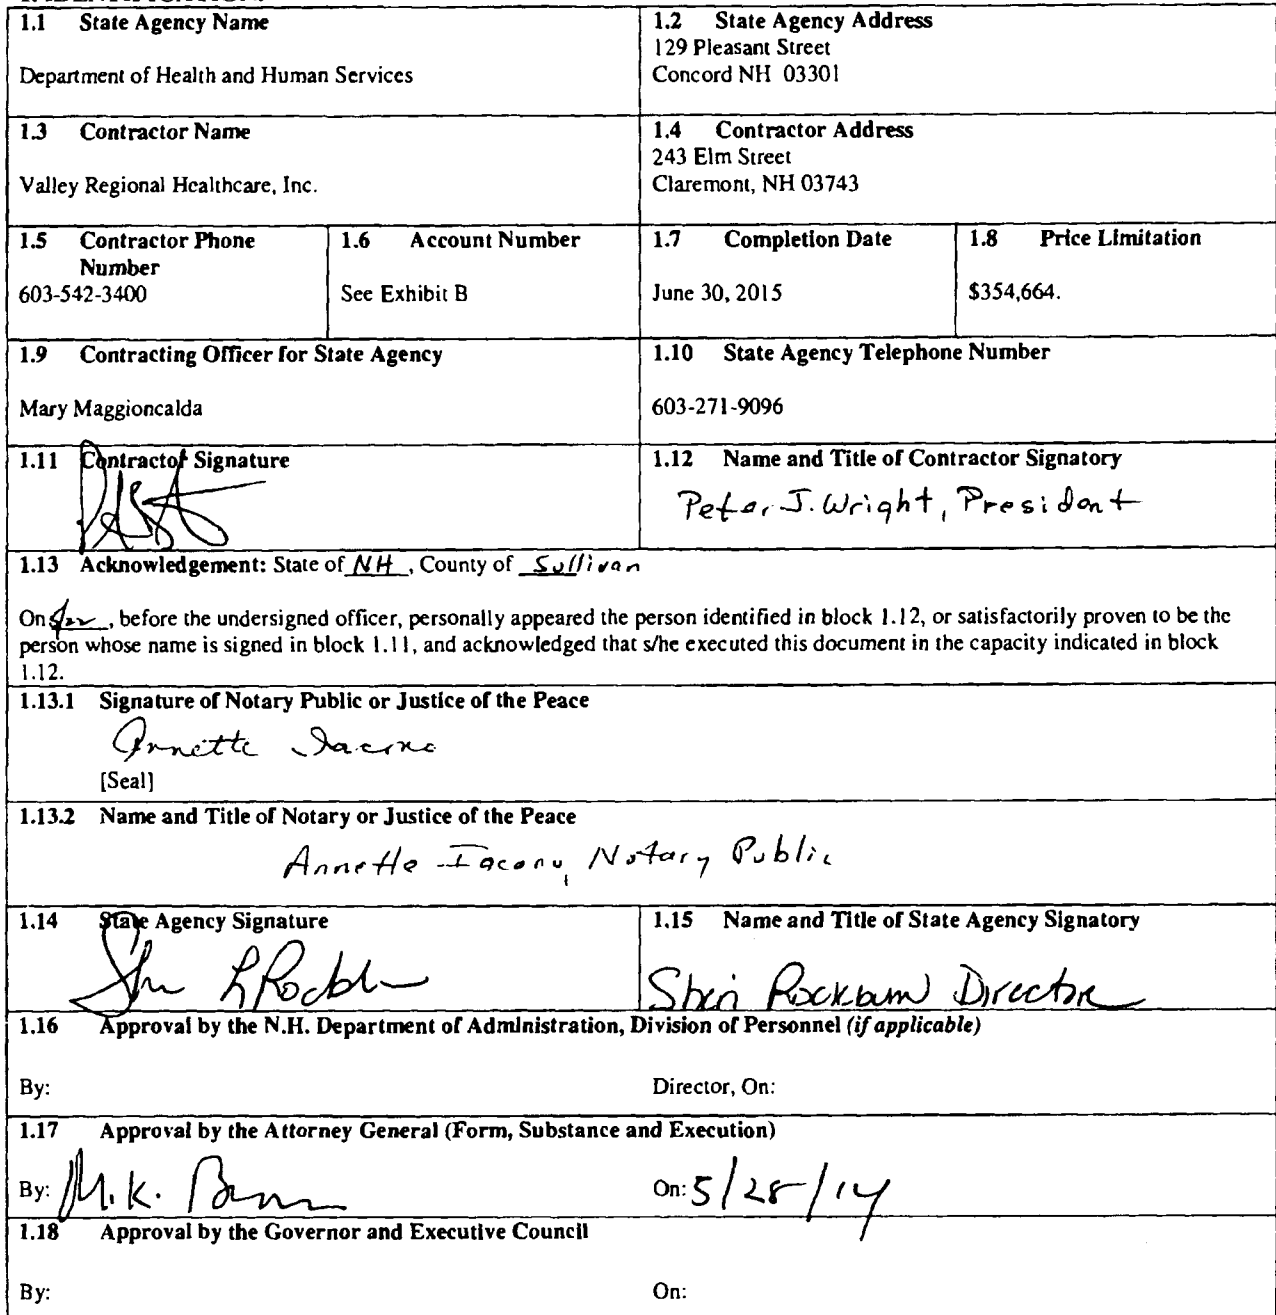 1.1 State Agency Name
Department of Health and Human Services
1.2 State Agency Address
129 Pleasant Street
Concord NH 03301
1.3 Contractor Name
Valley Regional Healthcare, Inc.
1.4 Contractor Address
243 Elm Street
Claremont, NH 03743
1.5 Contractor Phone
Number
603-542-3400
1.6 Account Number
See Exhibit B
1.7 Completion Date
June 30, 2015
1.8 Price Limitation
$354,664.
1.9 Contracting Officer for State Agency
Mary Maggioncalda
1.10 State Agency Telephone Number
603-271-9096
1.11 Contractor Signature
1.12 Name and Title of Contractor Signatory
Peter J. Wright, President
1.13 Acknowledgement: State of NH, County of Sullivan
On , before the undersigned officer, personally appeared the person identified in block 1.12, or satisfactorily proven to be the
person whose name is signed in block 1.11, and acknowledged that s/he executed this document in the capacity indicated in block
1.12.
1.13.1 Signature of Notary Public or Justice of the Peace
Annette
[Seal]
1.13.2 Name and Title of Notary or Justice of the Peace
Annette Notary Public
1.14 State Agency Signature
1.15 Name and Title of State Agency Signatory
Director
1.16 Approval by the N.H. Department of Administration, Division of Personnel (if applicable)
By:
Director, On:
1.17 Approval by the Attorney General (Form, Substance and Execution)
By: M.K.
On: 5/28/14
1.18 Approval by the Governor and Executive Council
By:
On: